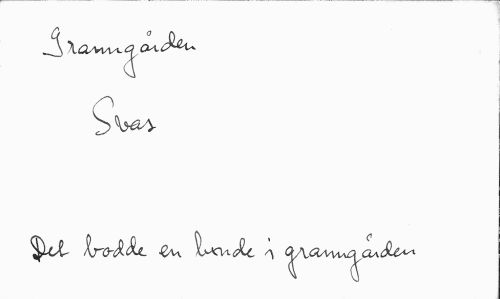 Granngården
Svas
Det bodde en bonde i granngården